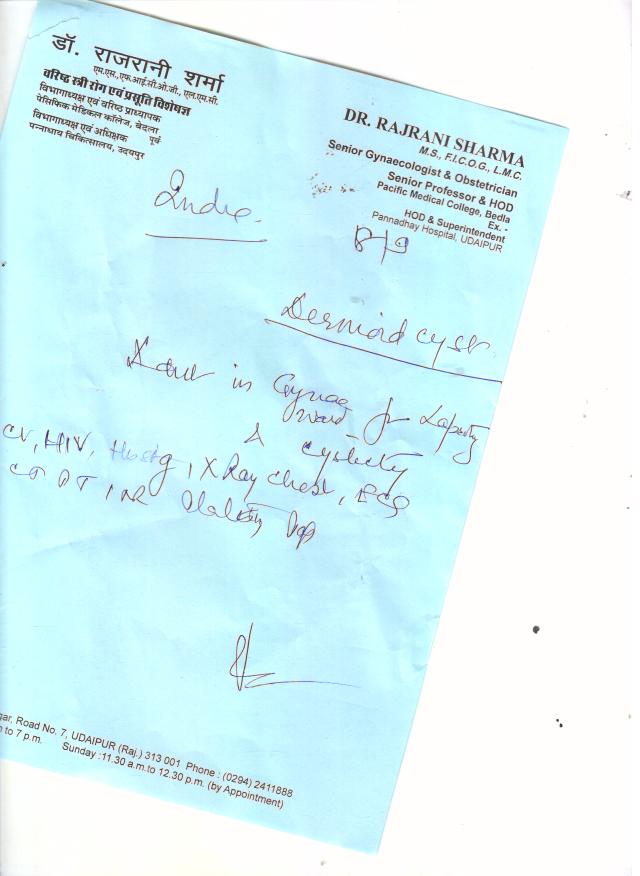 डॉ. राजरानी शर्मा
एम.एस.,एफ.आई.सी.ओ.जी., एल.एम.सी.
वरिष्ठ स्त्री रोग एवं प्रसूति विशेषज्ञ
विभागाध्यक्ष एवं वरिष्ठ प्राध्यापक
पेसिफिक मेडिकल कॉलेज, बेदला
पूर्व
विभागाध्यक्ष एवं अधिक्षक
पन्नाधाय चिकित्सालय, उदयपुर
DR. RAJRANI SHARMA
M.S., F.I.C.O.G., L.M.C.
Senior Gynaecologist & Obstetrician
Senior Professor & HOD
Pacific Medical College, Bedla
Ex. -
HOD & Superintendent
Pannadhay Hospital, UDAIPUR
Dermoid cyst
in Gynae
ward for
HIV, HbsAg, X Ray chest, ECG
PT INR
Road No. 7, UDAIPUR (Raj.) 313 001 Phone : (0294) 2411888
to 7 p.m. Sunday :11.30 a.m.to 12.30 p.m. (by Appointment)